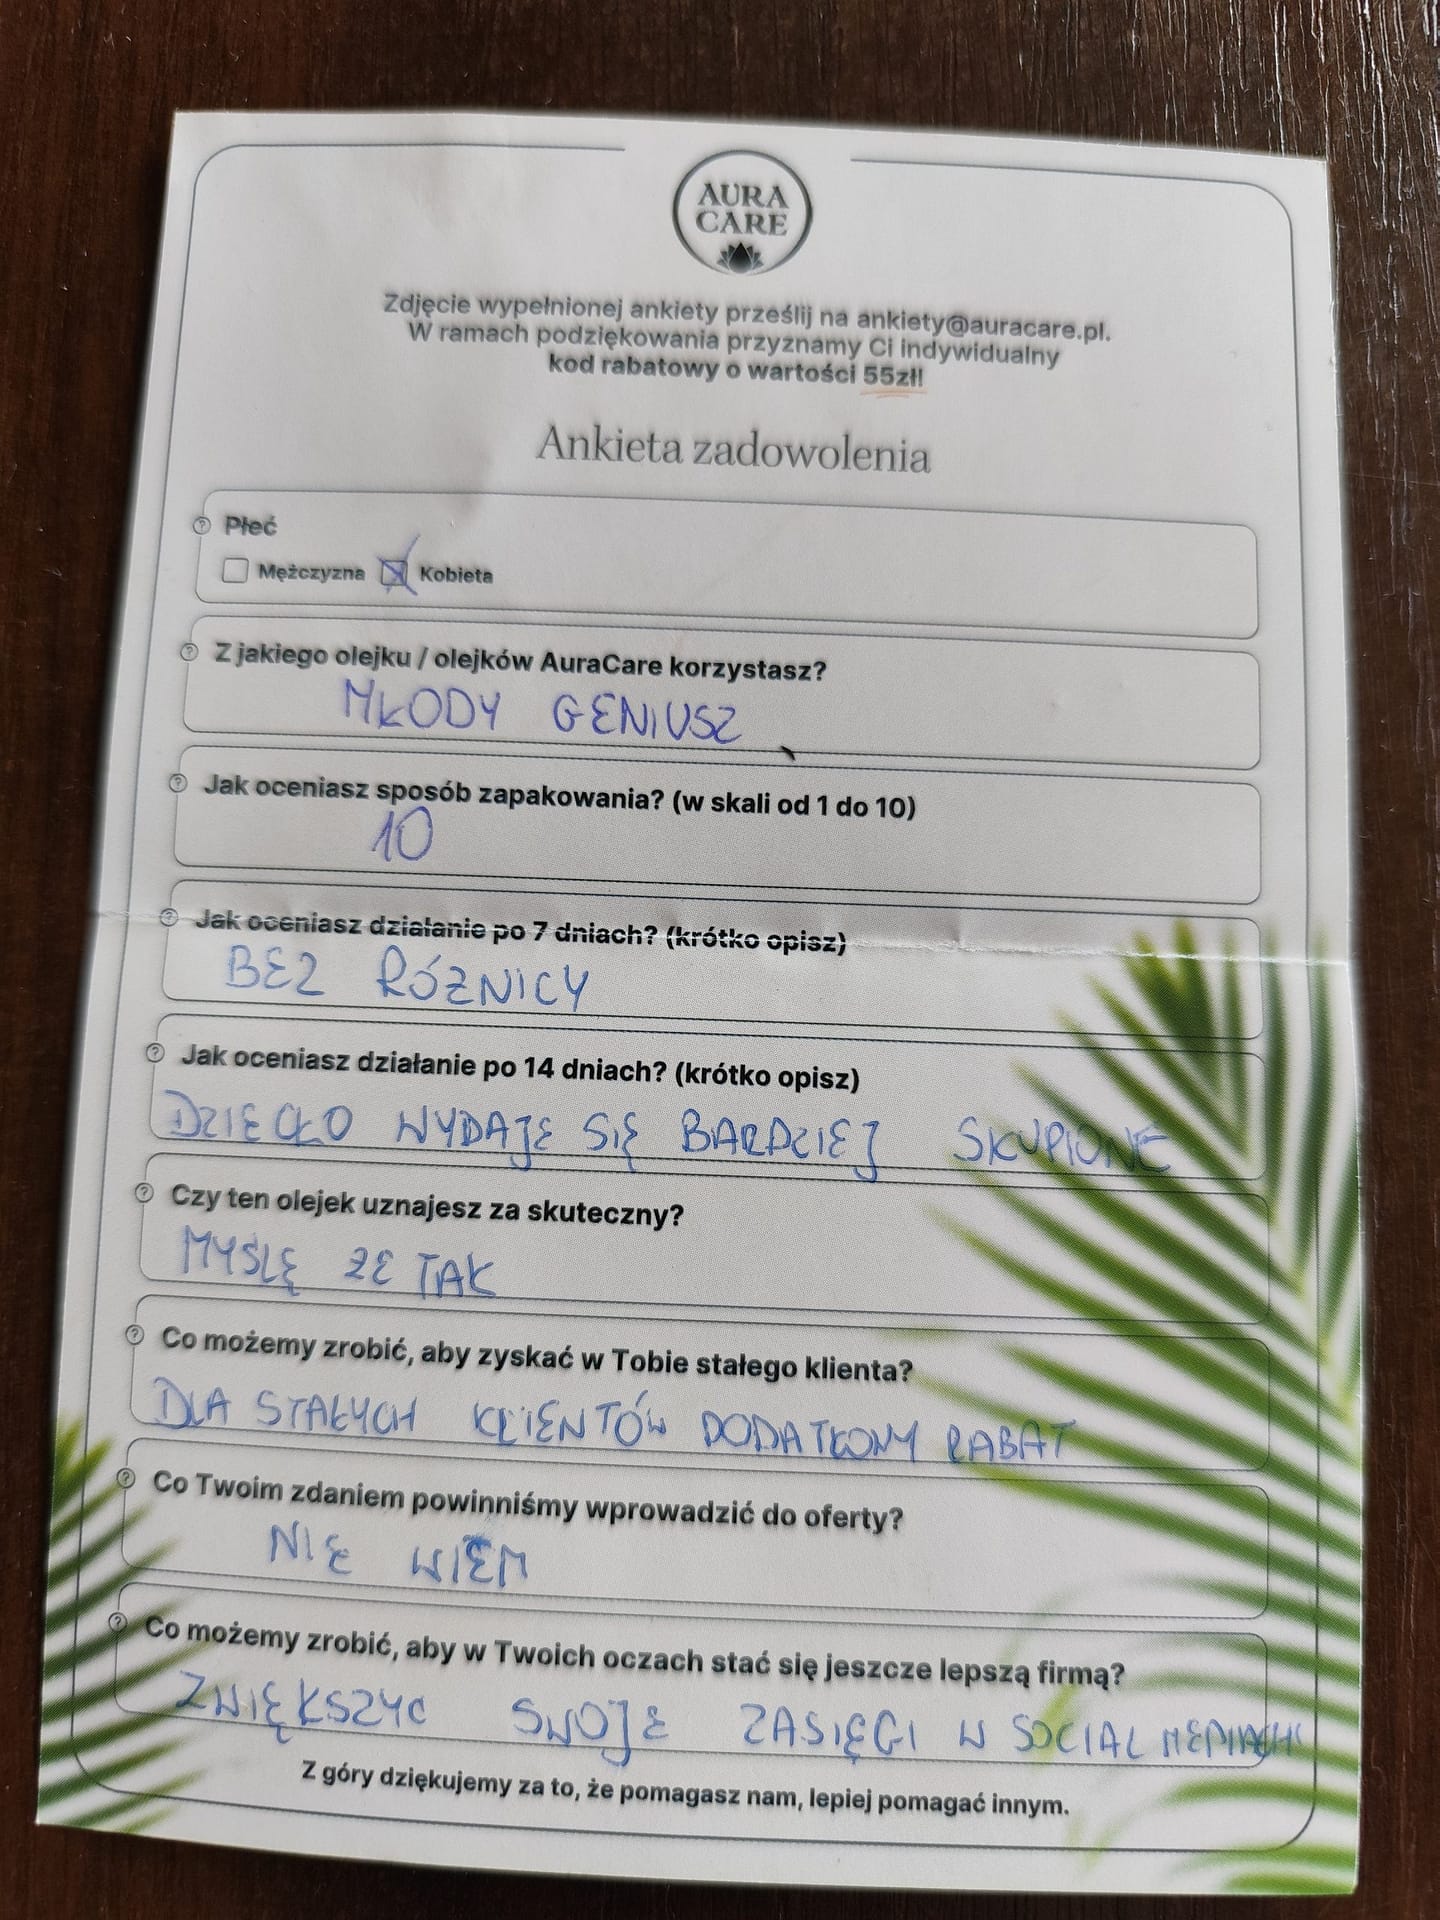 AURA
CARE
Zdjęcie wypełnionej ankiety prześlij na ankiety@auracare.pl.
W ramach podziękowania przyznamy Ci indywidualny
kod rabatowy o wartości 55zł!
Ankieta zadowolenia
Płeć
Mężczyzna Kobieta
Z jakiego olejku / olejków AuraCare korzystasz?
MŁODY GENIUSZ
Jak oceniasz sposób zapakowania? (w skali od 1 do 10)
10
Jak oceniasz działanie po 7 dniach? (krótko opisz)
BEZ RÓŻNICY
Jak oceniasz działanie po 14 dniach? (krótko opisz)
DZIECKO WYDAJE SIĘ BARDZIEJ SKUPIONE
Czy ten olejek uznajesz za skuteczny?
MYSLĘ ZE TAK
Co możemy zrobić, aby zyskać w Tobie stałego klienta?
DLA STAŁYCH KLIENTÓW DODATKOWY RABAT
Co Twoim zdaniem powinniśmy wprowadzić do oferty?
NIE WIEM
Co możemy zrobić, aby w Twoich oczach stać się jeszcze lepszą firmą?
ZWIĘKSZYC SWOJE ZASIĘGI W SOCIAL MEDIACH
Z góry dziękujemy za to, że pomagasz nam, lepiej pomagać innym.